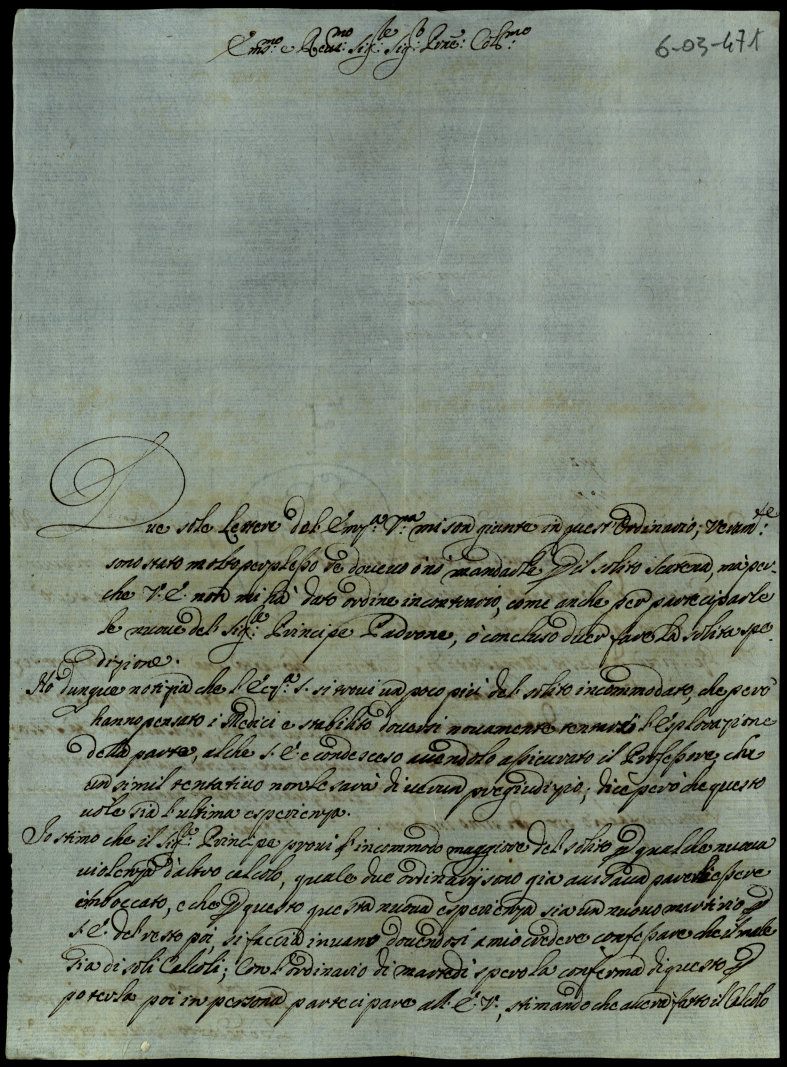 E.mo e Rev.mo Sig.re Sig.r P.rone Col.mo
6-03-471
Due sole Lettere dell'Em.za V.ra mi son giunte in quest'Ordinario; veram.te
sono stato molto perplesso se dovevo ò nò mandarle p il solito Scarena, mà per-
che V.E. non mi hà dato ordine incontrario, come anche per participarle
le nuove del Sig.re Principe Padrone, ò concluso di far fare la solita spe-
dizione.
Hò dunque notizia che l'Ecc.za S. si trovi un poco più del solito incommodato, che però
hanno pensato i Medici e stabilito doversi novamente tentare l'esplorazione
della parte, al che S.E. è condesceso avendolo assicurato il Professore che
un simil tentativo non le sarà di verun pregiudizio; dice però che questo
vole sia l'ultima esperienza.
Io stimo che il Sig.re Principe provi l'incommodo maggiore del solito p qualche nuova
violenza d'altro calcolo, quale due ordinarij sono già avisava parerli essere
imboccato, e che p questo questa nuova esperienza sia un nuovo martirio p
S.E. del resto poi, si faccia invano dovendosi a mio credere confessare che il male
sia di soli Calcoli; Con l'ordinario di martedi spero la conferma di questo p
poterla poi in persona participare all'E.V., stimando che averà fatto il Calcolo